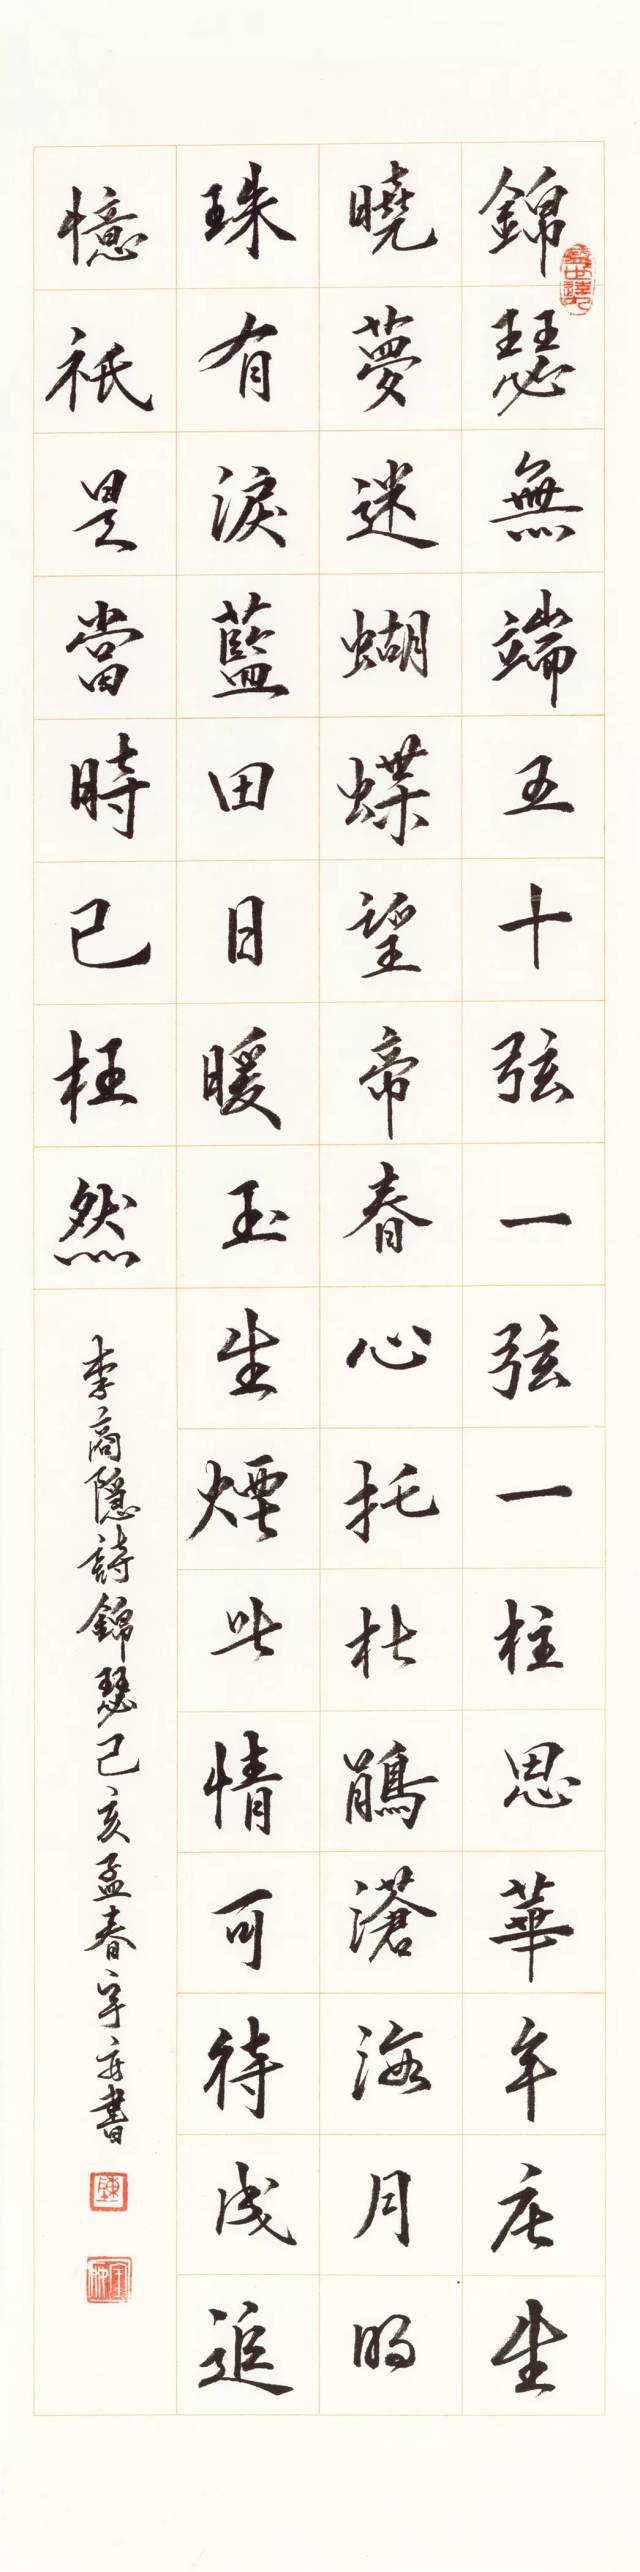 錦瑟無端五十弦一弦一柱思華年庄生
曉夢迷蝴蝶望帝春心托杜鵑滄海月明
珠有淚藍田日暖玉生煙此情可待成追
憶祇是當時已枉然
李商隱詩錦瑟己亥孟春書